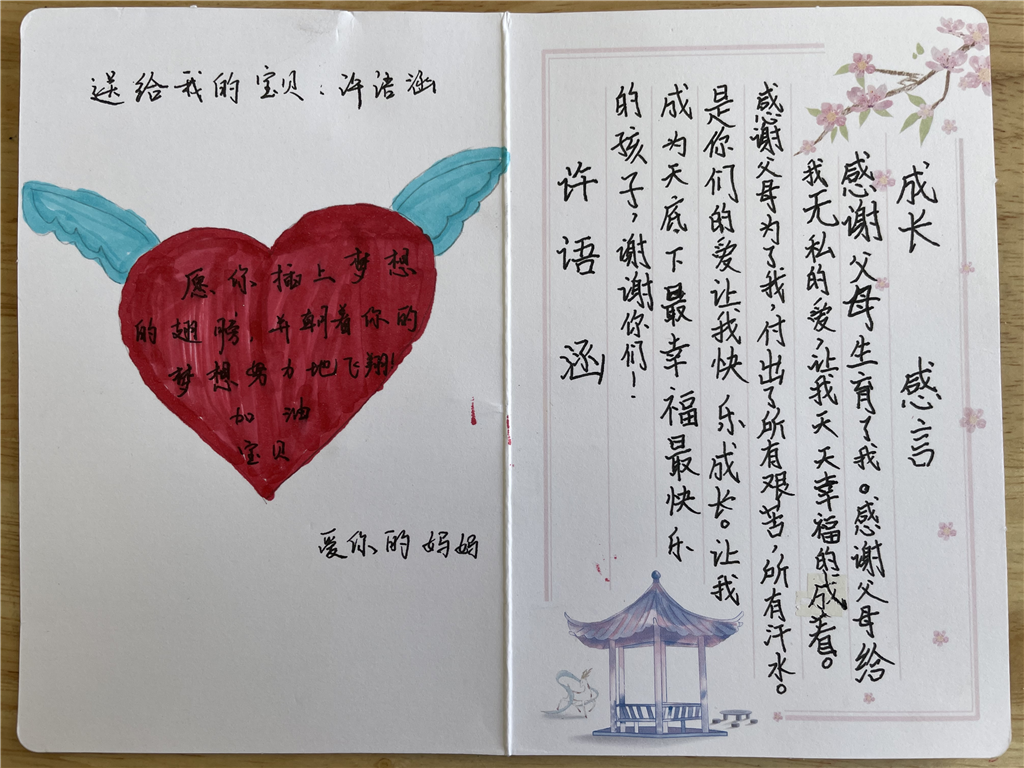 送给我的宝贝：许语涵
愿你插上梦想
的翅膀，并朝着你的
梦想努力地飞翔！
加油
宝贝
爱你的妈妈
成长感言
感谢父母生育了我。感谢父母给
我无私的爱，让我天天幸福的成着。
感谢父母为了我，付出了所有艰苦，所有汗水。
是你们的爱让我快乐成长。让我
成为天底下最幸福最快乐
的孩子，谢谢你们！
许语涵